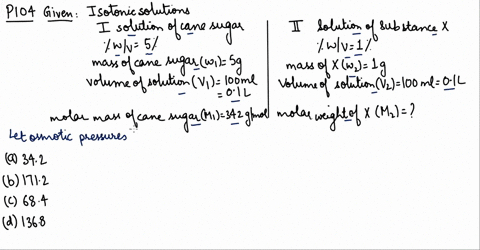 P104 Given: Isotonic solutions
I solution of cane sugar
% w/v = 5%
mass of cane sugar (w₁) = 5g
volume of solution (V₁) = 100ml
= 0.1L
molar mass of cane sugar (M₁) = 342 g/mol
II Solution of substance X
% w/v = 1%
mass of X (w₂) = 1g
Volume of solution (V₂) = 100 ml = 0.1L
molar weight of X (M₂) = ?
Let osmotic pressures
(a) 34.2
(b) 171.2
(c) 68.4
(d) 136.8